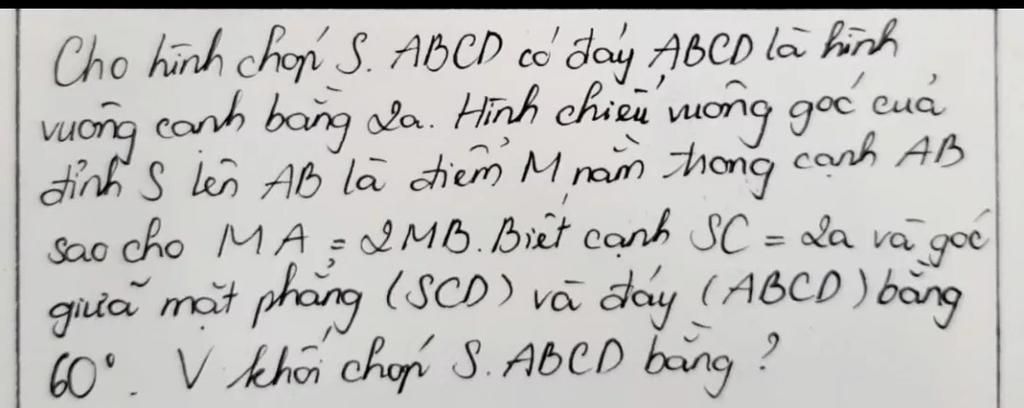 Cho hình chóp S. ABCD có đáy ABCD là hình
vuông cạnh bằng 2a. Hình chiếu vuông góc của
đỉnh S lên AB là điểm M nằm trong cạnh AB
sao cho MA = 2MB. Biết cạnh SC = 2a và góc
giữa mặt phẳng (SCD) và đáy (ABCD) bằng
60°. V khối chóp S. ABCD bằng ?